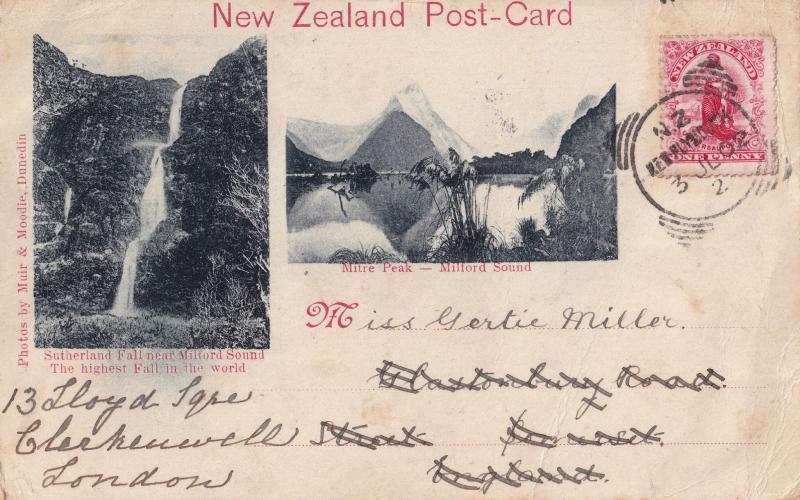 New Zealand Post-Card
Photos by Muir & Moodie, Dunedin
NEW ZEALAND
ONE PENNY
N.Z.
3 JU 02
2
Mitre Peak — Milford Sound
Sutherland Fall near Milford Sound
The highest Fall in the world
Miss Gertie Miller.
Glastonbury Road
Street Somerset.
England.
13 Lloyd Sqre
Clerkenwell
London